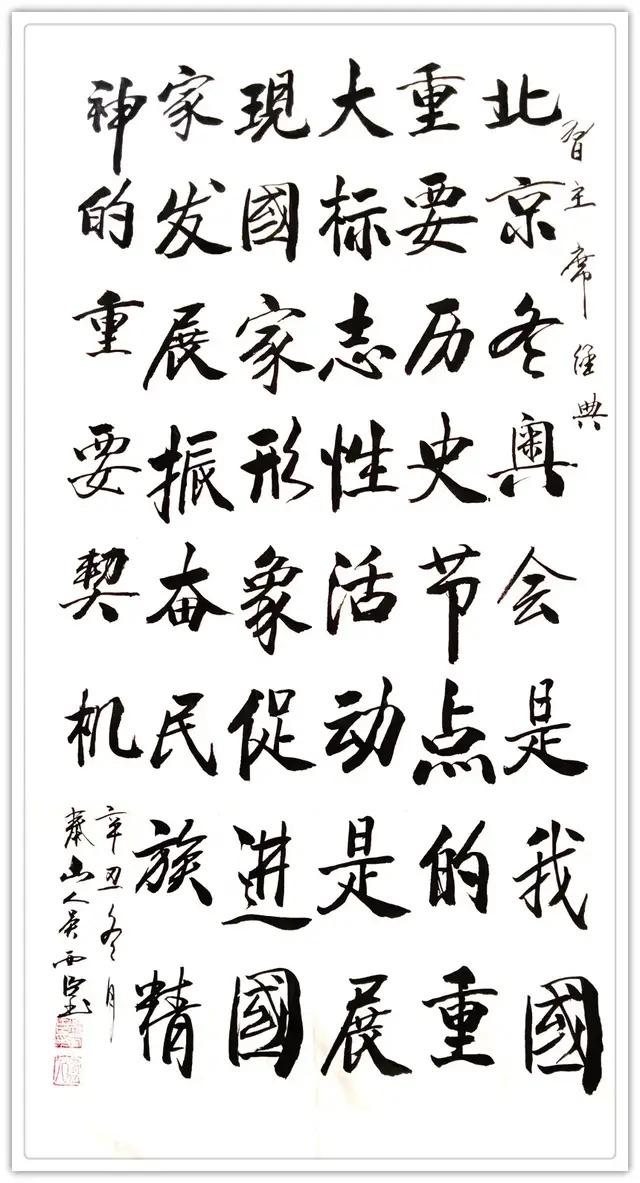 習主席經典
北京冬奥会是我國
重要历史节点的重
大标志性活动是展
現國家形象促進國
家发展振奋民族精
神的重要契机
辛丑冬月
泰山人吴